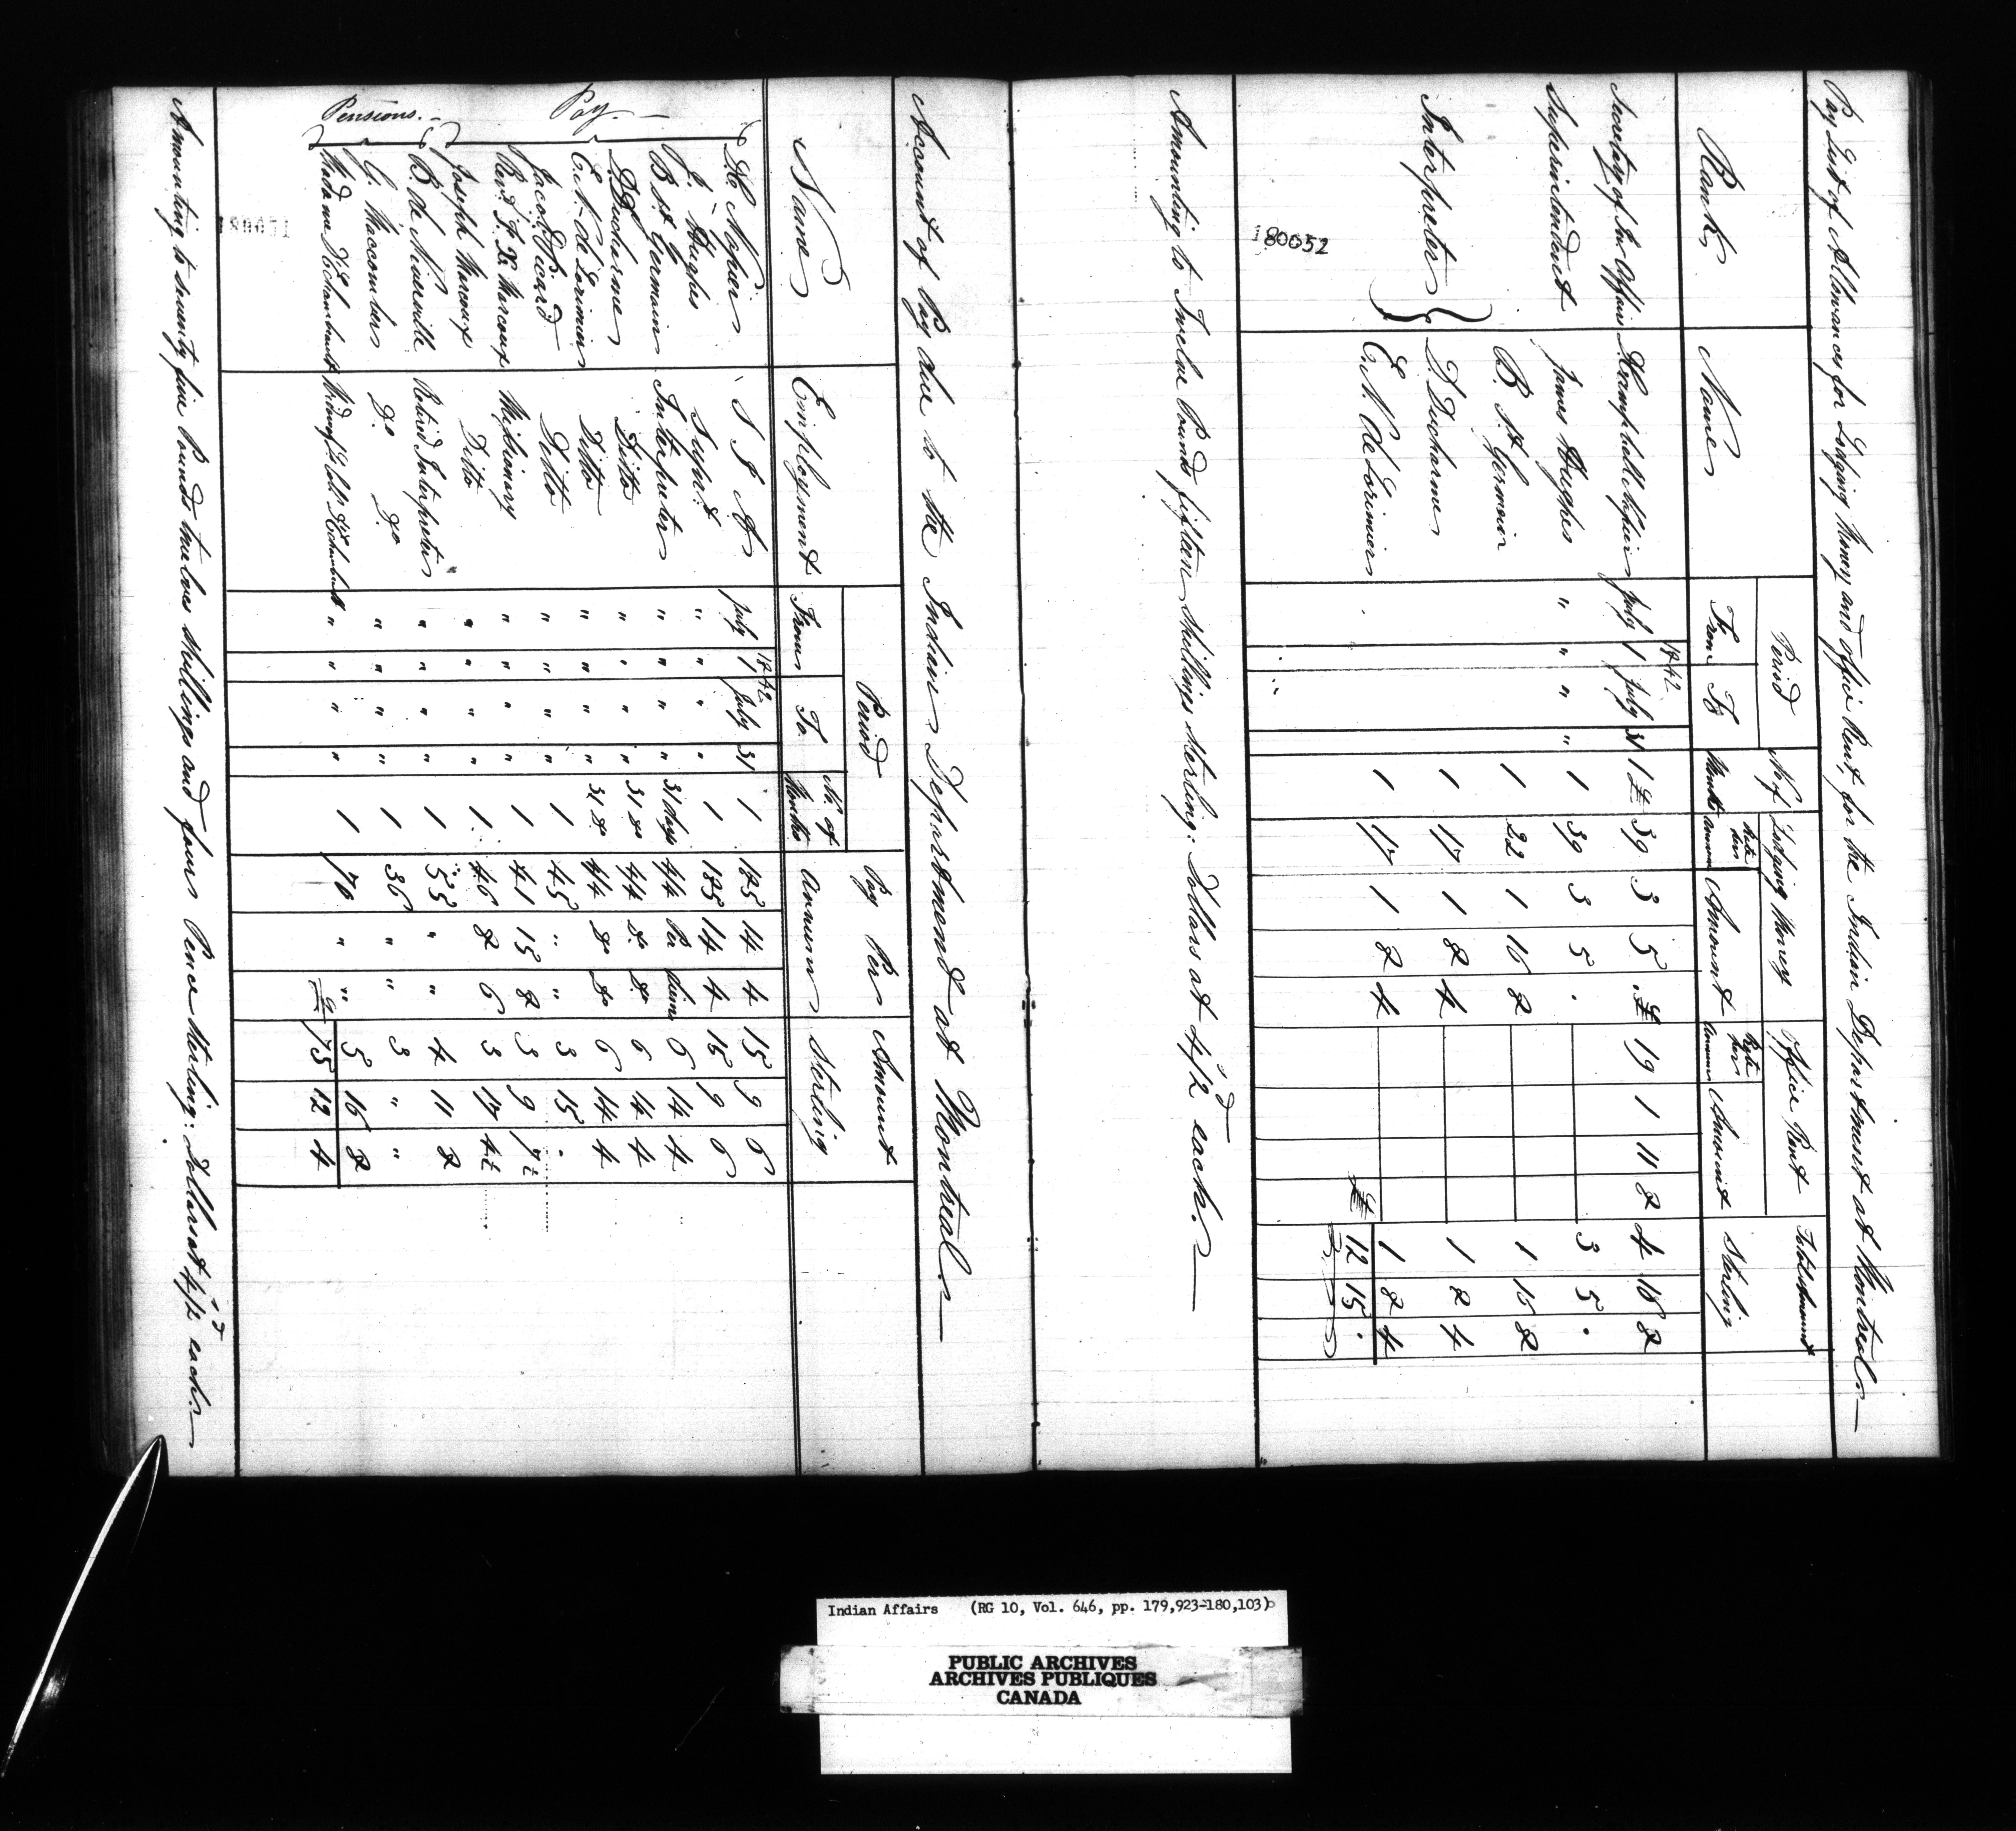 Pay List of Allowances for Lodging Money and Office Rent, for the Indian Department at Montreal
Rank Name Period No of Months Lodging Money Office Rent Total Amount Sterling
From To Rate per annum Amount Rate per annum Amount
1842
Secretary of In. Affairs D. Campbell Napier July 1 July 31 1 £ 39 3 5 . £ 19 1 11 8 4 16 8
Superintendent James Hughes " " " " 1 39 3 5 . 3 5 .
Interpreter B. St. Germain 1 22 1 16 8 1 16 8
D. Ducharme 1 17 1 8 4 1 8 4
E. N. de Lorimier 1 17 1 8 4 1 8 4
£ 12 15 .
180052
Amounting to Twelve Pounds fifteen Shillings sterling: Dollars at 4/2 each.
Account of Pay due to the Indian Department at Montreal
Name Employment Period No. of Months Pay Per Annum Amount Sterling
From To
1842
Pay.
D. C. Napier S I A July 1 July 31 1 185 14 4 15 9 6
J. Hughes Supt. " " " " 1 185 14 4 15 9 6
B. St. Germain Interpreter " " " " 31 days 4/4 Per diem 6 14 4
D. Ducharme Ditto " " " " 31 do 4/4 do. do. 6 14 4
E. N. de Lorimier Ditto " " " " 31 do 4/4 do do 6 14 4
Jacob Picard Ditto " " " " 1 45 " " 3 15 .
Revd. F. X. Marcoux Missionary " " " " 1 41 15 8 3 9 7½
Joseph Marcoux Ditto " " " " 1 46 8 6 3 17 4½
Pensions.
B. de Niverville Retired Interpreter " " " " 1 55 " " 4 11 8
G. Maccomber Do Do " " " " 1 36 " " 3 " "
Madame De Chambault " " " " 1 70 " " 5 16 8
£ 75 12 4
180051
Amounting to seventy five Pounds twelve shillings and four Pence sterling: Dollars at 4/2 each.
Indian Affairs (RG 10, Vol. 646, pp. 179,923-180,103)
PUBLIC ARCHIVES
ARCHIVES PUBLIQUES
CANADA